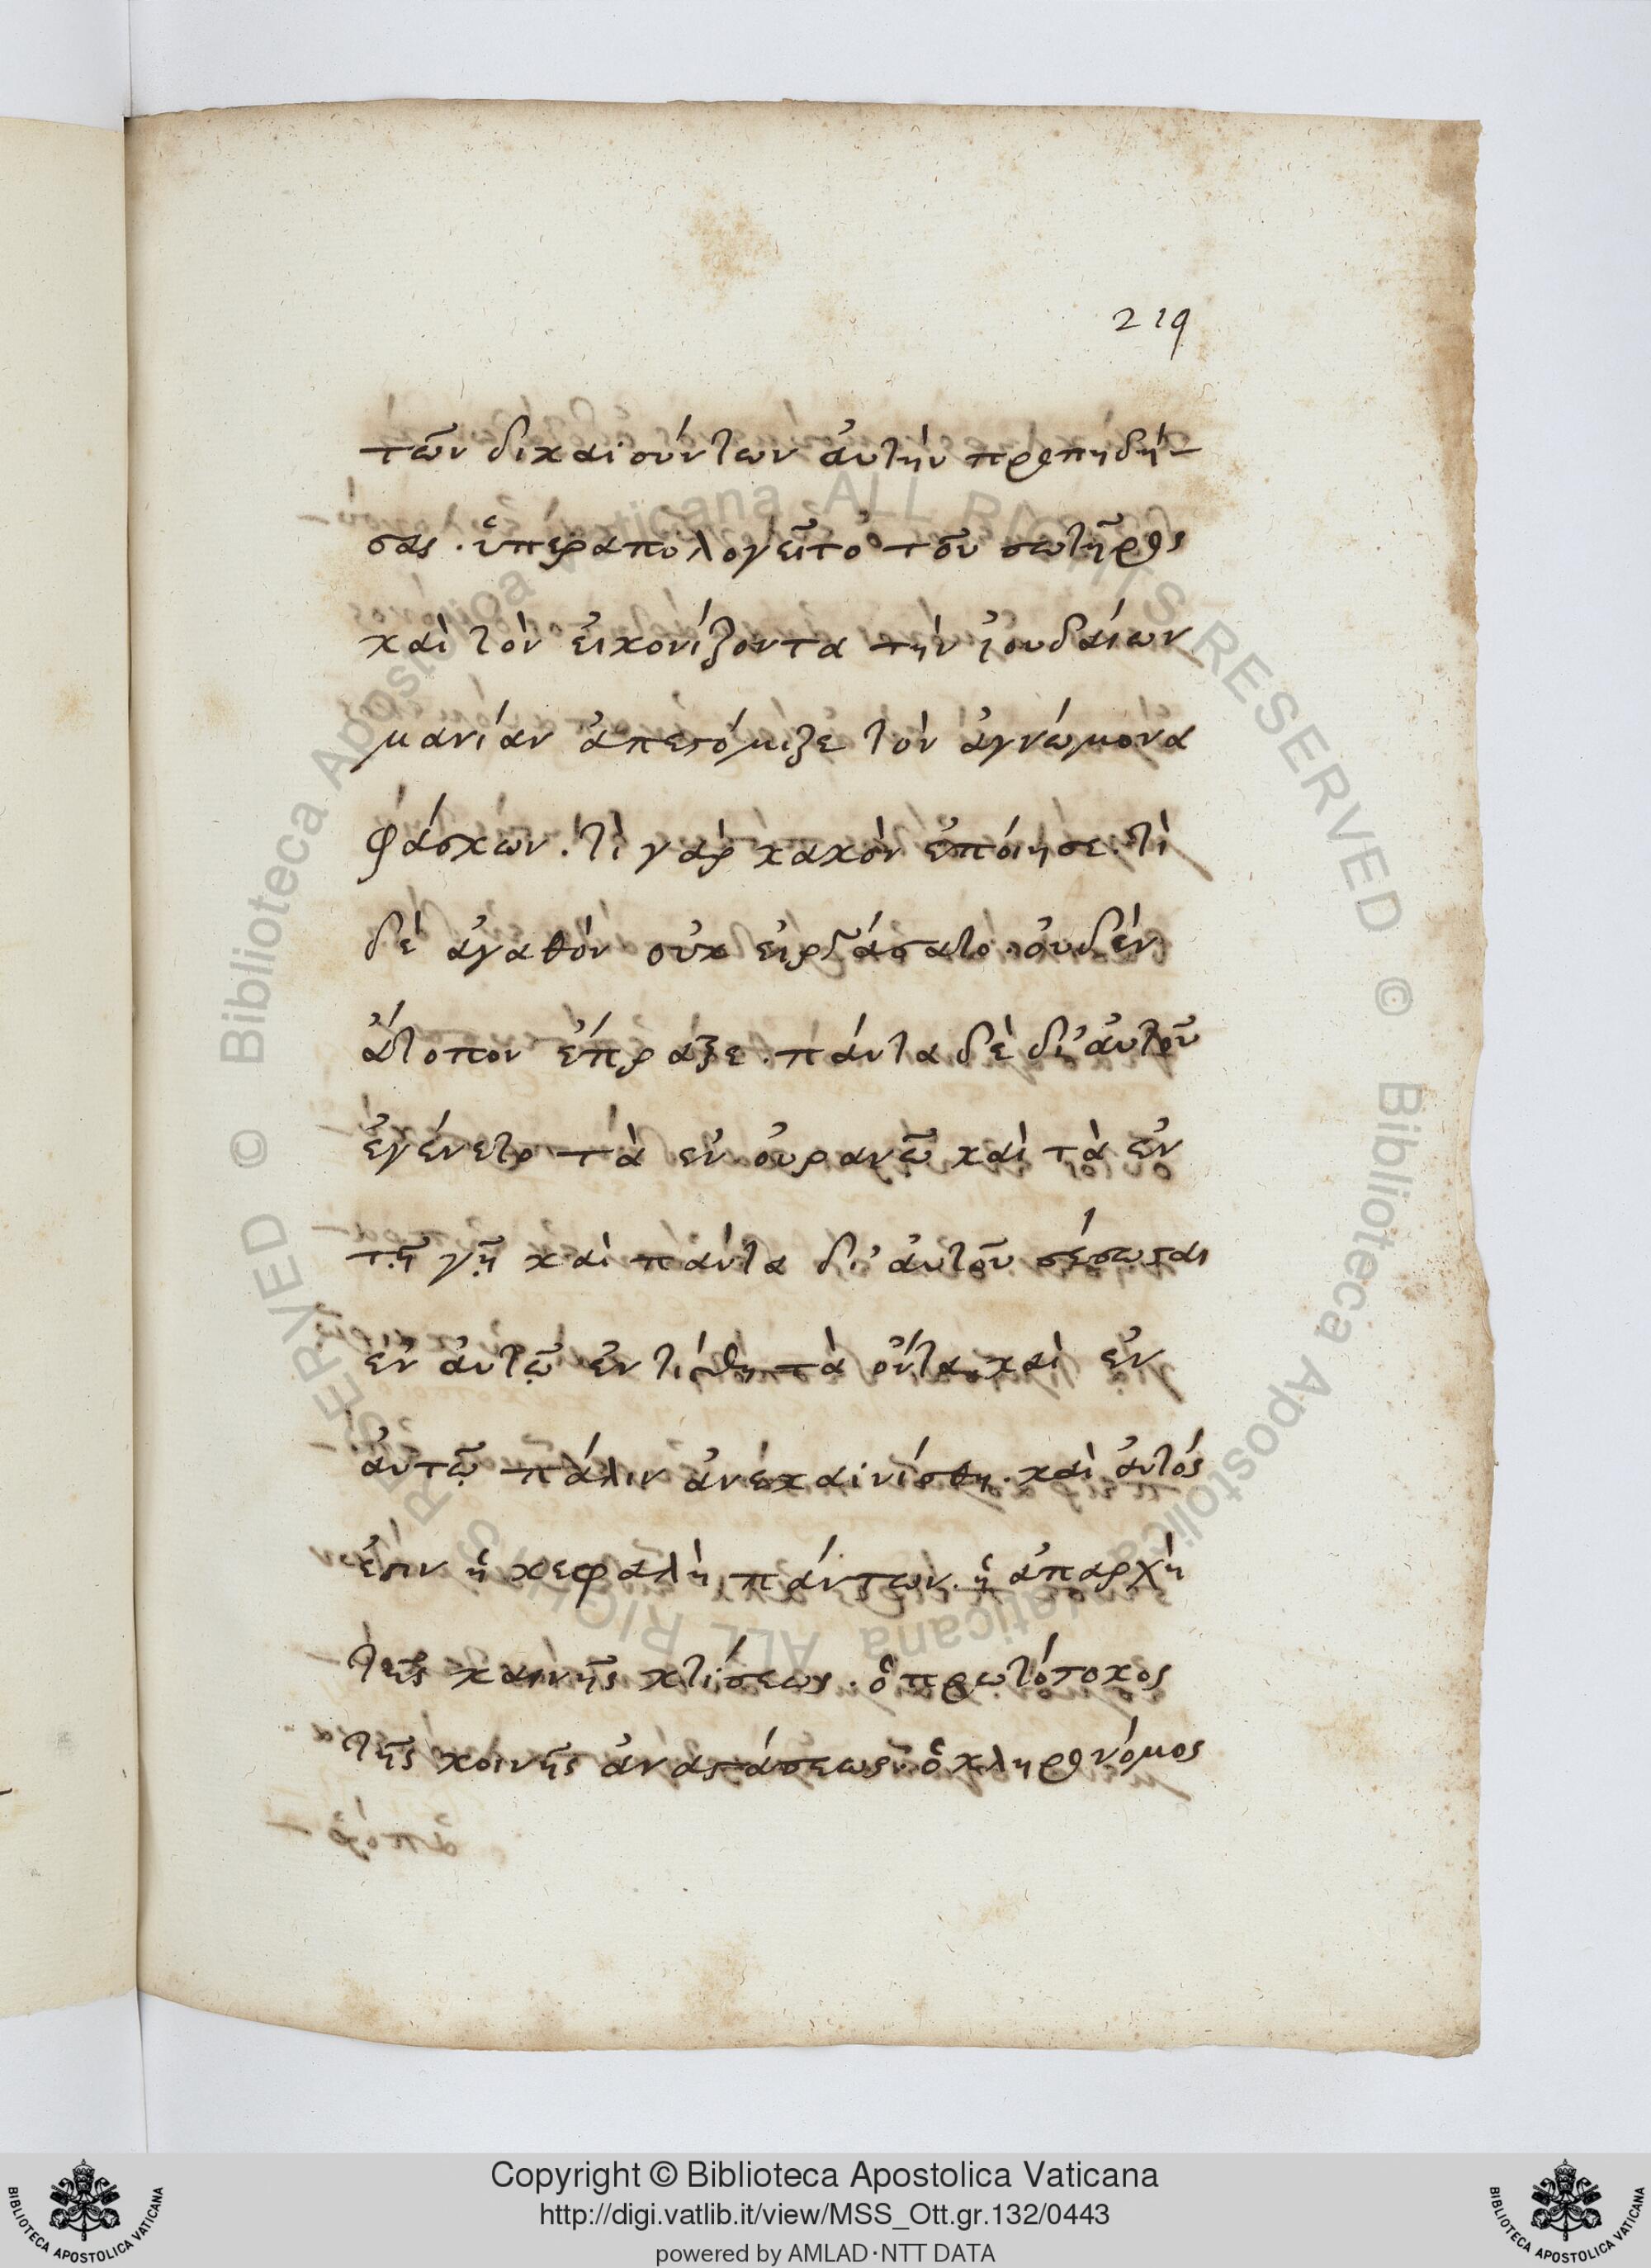 219
τῶν δικαιούντων ἀυτὴν προπηδή-
σας. ὑπεραπολογεῖτο τοῦ σωτῆρος
καὶ τὸν εἰκονίζοντα τὴν ἰουδαίων
μανίαν ἀπεστόμιζε τὸν ἀγνώμονα
φάσκων. τὶ γὰρ κακὸν ἐποίησε. τὶ
δὲ ἀγαθὸν οὐκ εἰργάσατο. ὀυδὲν
ἄτοπον ἔπραξε. πάντα δὲ δι' ἀυτοῦ
ἐγένετο τὰ ἐν ὀυρανῶ καὶ τὰ ἐν
τῆ γῆ καὶ πάντα δι' ἀυτοῦ σέσωσται
ἐν ἀυτῶ ἐκτίσθη τὰ ὄντα καὶ ἐν
ἀυτῶ πάλιν ἀνεκαινίσθη. καὶ ἀυτός
ἐστιν ἡ κεφαλὴ πάντων. ἡ ἀπαρχὴ
τῆς καινῆς κτίσεως. ὁ πρωτότοκος
τῆς κοινῆς ἀναστάσεως. ὁ κληρονόμος
Copyright © Biblioteca Apostolica Vaticana
http://digi.vatlib.it/view/MSS_Ott.gr.132/0443
powered by AMLAD·NTT DATA
BIBLIOTECA APOSTOLICA VATICANA
BIBLIOTECA APOSTOLICA VATICANA
© Biblioteca Apostolica Vaticana ALL RIGHTS RESERVED
© Biblioteca Apostolica Vaticana ALL RIGHTS RESERVED